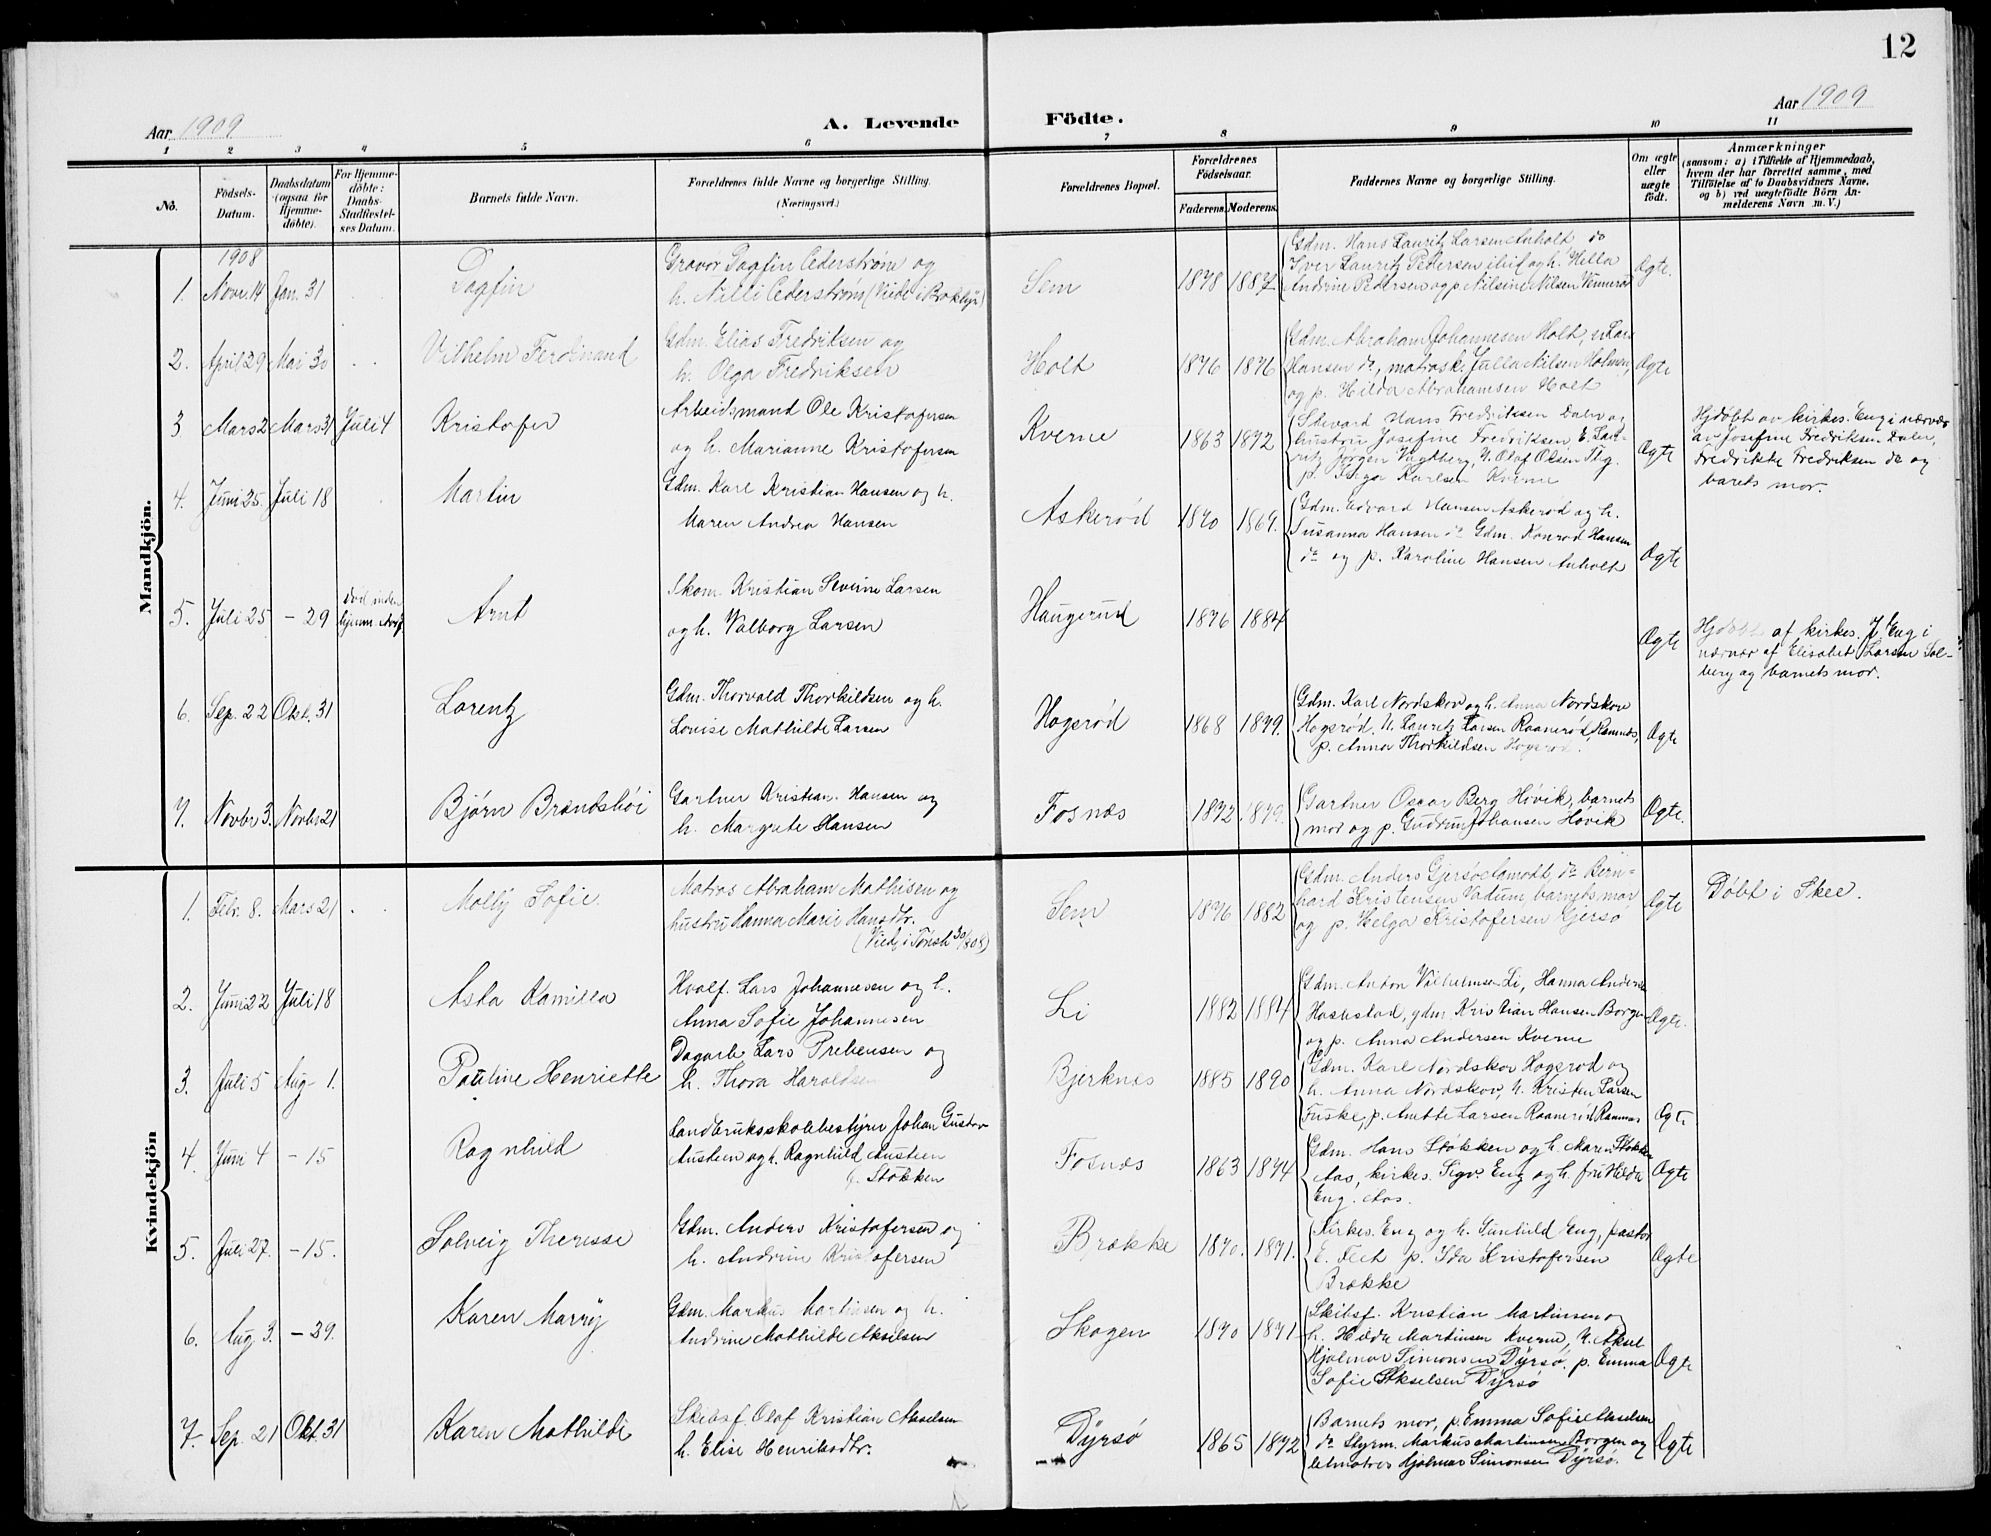 12
Aar 1909
A. Levende
Fødte.
Aar 1909
1 2 3 4 5 6 7 8 9 10 11
No.
Fødsels-
Datum.
Daabsdatum
(ogsaa for
Hjemme-
døbte).
For Hjemme-
døbte:
Daabs-
Stadfæstel-
ses Datum.
Barnets fulde Navn.
Forældrenes fulde Navne og borgerlige Stilling.
(Næringsvei.)
Forældrenes Bopæl.
Forældrenes
Fødselsaar.
Faderens. Moderens.
Faddernes Navne og borgerlige Stilling.
Om ægte
eller
uægte
født.
Anmærkninger
(saasom: a) i Tilfælde af Hjemmedaab,
hvem der har forrettet samme, med
Tilføielse af to Daabsvidners Navne,
og b) ved uægtefødte Børn An-
melderens Navn m. V.)
Mandkjön.
1908
1. Novr. 14 Jan. 31 Dagfin
Gravør Dagfin Cederstrøm og
h. Nilli Cederstrøm (Viede i Broklyn)
Sem 1878 1887
Gdm. Hans Lauritz Larsen Anholt, do
Iver Lauritz Pedersen ibid og h. Hilla
Andrine Pedersen og p. Nilsine Nilsen Vennerød
Ægte.
2. April 29 Mai 30 Vilhelm Ferdinand
Gdm. Elias Fredriksen og
h. Olga Fredriksen
Holt 1876 1876
Gdm. Abraham Johannesen Holt, u. Lars
Hansen do, matrosk. Julla Nilsen Holmen,
og p. Hilda Abrahamsen Holt
Ægte
3 Mars 2 Mars 31 Juli 4 Kristofer
Arbeidsmand Ole Kristofersen
og h. Marianne Kristofersen
Kverne 1863 1872
Stevard Hans Fredriksen Daler og
hustru Josefine Fredriksen E. Lau-
ritz Jørgen Vegtberg, U. Olaf Olsen Tbg.
p. Helga Karlsen Kverne
Ægte
Hjdøbt av kirkes. Eng i nærvær
av Josefine Fredriksen Daler,
Fredrikke Fredriksen do og
barets mor.
4. Juni 25. Juli 18 Martin
Gdm. Karl Kristian Hansen og h.
Maren Andrea Hansen
Askerød 1870 1869.
Gdm. Edvard Hansen Askerød og h.
Susanna Hansen do Gdm. Konrad Hansen
do og p. Karoline Hansen Anholt
Ægte
5. Juli 25 - 29 Død inden
Arnt
Skom. Kristian Severin Larsen
og h. Valborg Larsen
Haugerud 1876 1884
Ægte
Hjdøbt af kirkes. J Eng i
nærvær af Elisabet Larsen Sol-
berg og barnets mor.
6. Sep. 22 Okt. 31 Lorentz
Gdm. Thorvald Thorkildsen og h.
Lovise Mathilde Larsen
Hogsrød 1868 1879.
Gdm. Karl Nordskov og h. Anna Nordskov
Hogsrød, U. Lauritz Larsen Raanerød Ramnes,
p. Anna Thorkildsen Hogsrød.
Ægte
7. Novbr 3. Novbr 21 Bjørn Brandshøi
Gartner Kristian Hansen og
h. Margrete Hansen
Fosnæs 1872 1879.
Gartner Oscar Berg Høvik, barnets
mor og p. Gudrun Johansen Høvik
Ægte.
Kvindekjön
1. Febr. 8. Mars 21 Molly Sofie
Matros Abraham Mathisen og
hustru Hanna Marie Hansdtr.
(Vied i Tønsb 30/8 08)
Sem 1876 1882
Gdm. Anders Gjersøe Aamodt, do Bern-
hard Kristensen Vadum, barnets mor
og p. Helga Kristofersen Gjersø
Ægte
Døbt i Skee.
2. Juni 22 Juli 18 Asta Kamilla
Hvalf. Lars Johannesen og h.
Anna Sofie Johannesen
Li 1882 1884
Gdm. Anton Vilhelmsen Li, Hanna Andersen
Haskestad, gdm. Kristian Hansen Borgen
og p. Anna Andersen Kverne
Ægte.
3. Juli 5 Aug - 1. Pauline Henriette
Dagarb. Lars Prebensen og
h. Thora Haraldsen
Bjerknes 1885 1890
Gdm. Karl Nordskov Hogsrød og
h. Anna Nordskov, U. Kristen Larsen
Fuske, p. Anette Larsen Raanerød Ramnes
Ægte
4. Juni 4 - 15 Ragnhild
Landbruksskolebestyrer Johan Gustav
Austeen og h. Ragnhild Austeen
f. Støkken
Fosnæs 1863 1874
Gdm. Hans Støkken og h. Maren Støkken
Aas, kirkes. Sigv. Eng og h. fru Hilda
Eng. Aas.
Ægte
5. Juli 27. - 15. Solveig Theresse
Gdm. Anders Kristofersen og
h. Andrine Kristofersen
Brække 1870. 1871.
Kirkes. Eng og h. Gunhild Eng, pastor
E. Feet p. Ida Kristofersen
Brække
Ægte
6. Aug 3. - 29. Karen Marry
Gdm. Markus Martinsen og h.
Andrine Mathilde Akselsen
Skogen 1870 1871
Skibsf. Kristian Martinsen og
h. Hilda Martinsen Kverne, U. Aksel
Hjalmar Simonsen Dyrsø, p. Emma
Sofie Akselsen Dyrsø
Ægte
7. Sep. 21 Okt. 31 Karen Mathilde
Skibsf Olaf Kristian Akselsen
h. Elise Henriksdtr.
Dyrsø 1865 1872
Barnets mor, p. Emma Sofie Akselsen
do Styrm. Markus Martinsen Borgen og
letmatros Hjalmar Simonsen Dyrsø.
Ægte